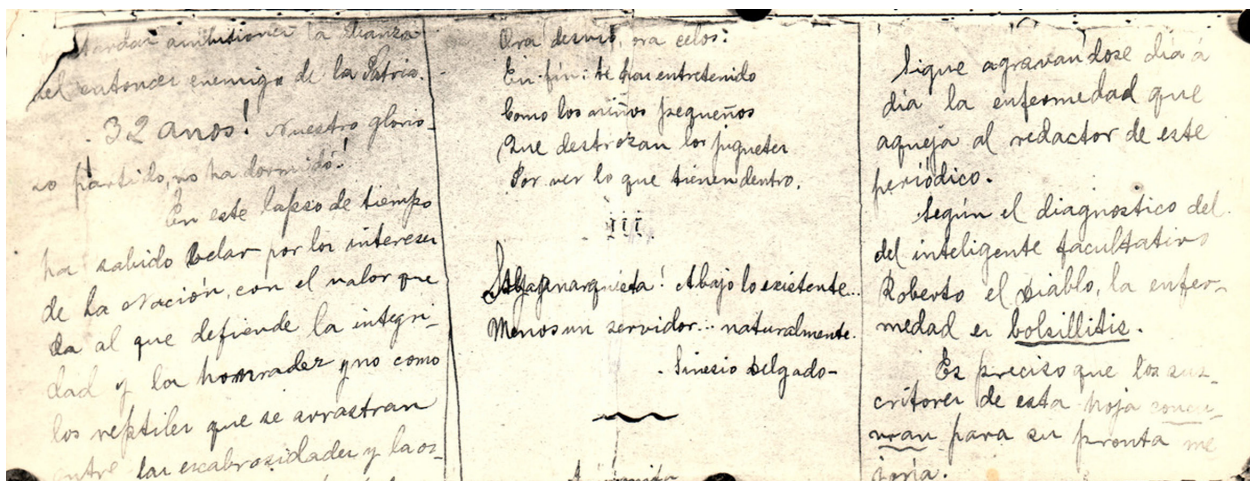 ambiciones la alianza
del entonces enemigo de la Patria.
32 anos! Nuestro glorio-
so partido, no ha dormido!
En este lapso de tiempo
ha sabido velar por los intereses
de la Nación, con el valor que
da al que defiende la integri-
dad y la honradez y no como
los reptiles que se arrastran
entre las escabrosidades y la os-
Ora desvio, ora celos:
En fin: te has entretenido
Como los niños pequeños
Que destrozan los jugueter
Por ver lo que tienen dentro.
III
anarquista! Abajo lo existente...
Menos un servidor... naturalmente.
- Sinesio Delgado-
Sigue agravandose dia á
dia la enfermedad que
aqueja al redactor de este
periódico.
Según el diagnostico del
del inteligente facultativo
Roberto el Diablo, la enfer-
medad es bolsillitis.
Es preciso que los sus-
critores de esta hoja concu-
rran para su pronta me
joria.